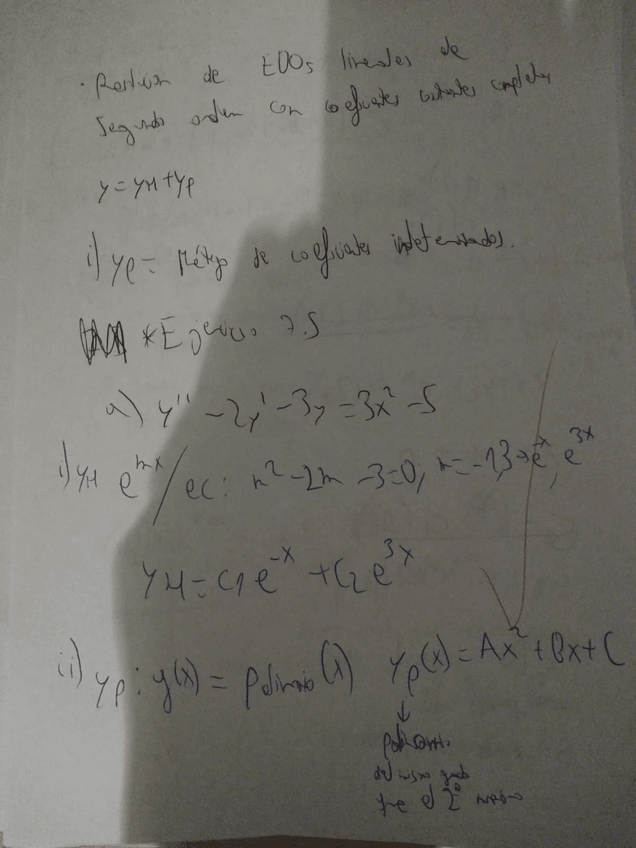 · Resolución de EDOs lineales de
segundo orden con coeficientes constantes completas
y = yH + yp
i) yp = Método de coeficientes indeterminados.
* Ejercicio 7.5
a) y'' - 2y' - 3y = 3x² - 5
i) yH e^mx / ec: m² - 2m - 3 = 0; m = -1, 3 → e^-x, e^3x
yH = C1 e^-x + C2 e^3x
ii) yp: g(x) = polinomio(x) yp(x) = Ax² + Bx + C
↓
polinomio
del mismo grado
que el 2º miembro